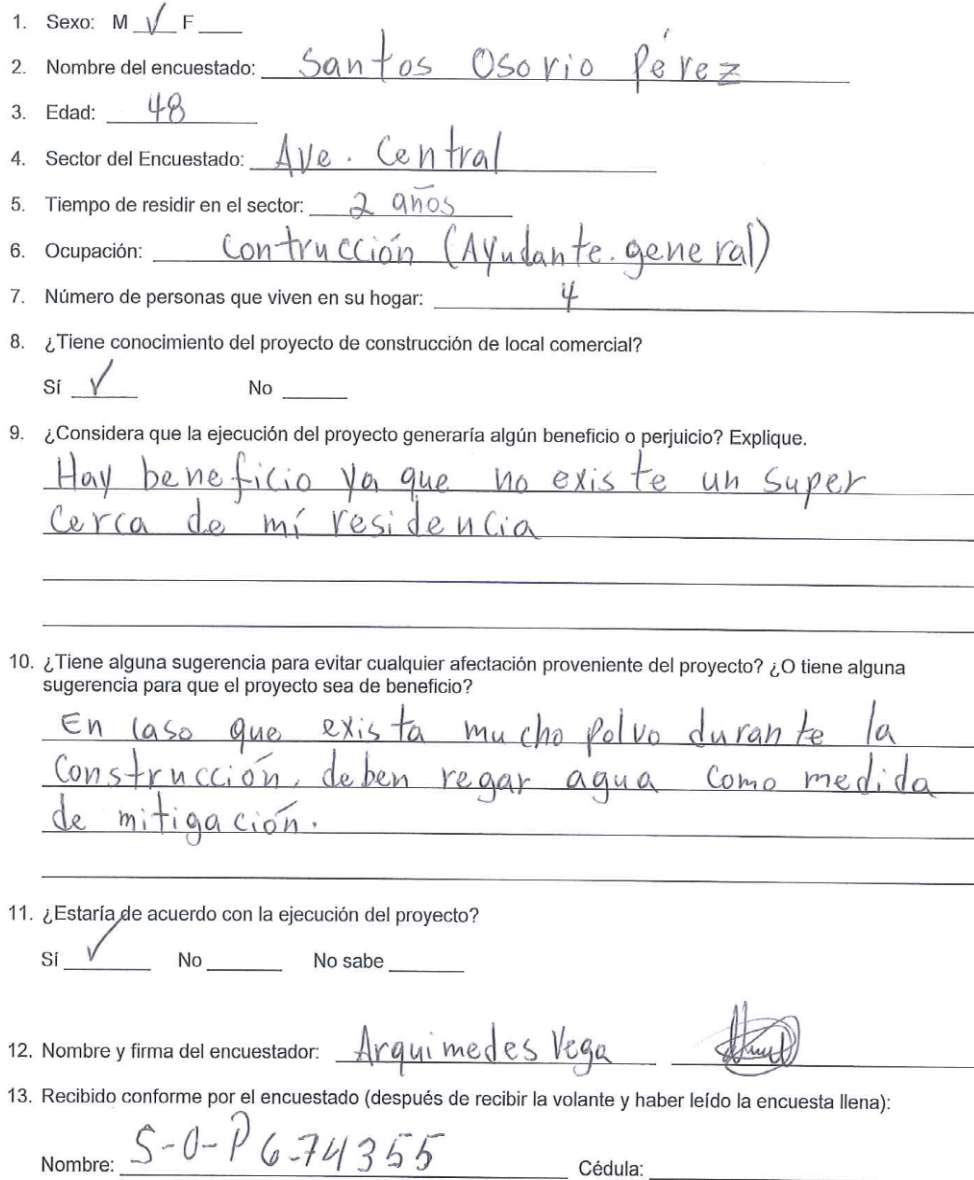 1. Sexo: M √ F ____
2. Nombre del encuestado: Santos Osorio Pérez
3. Edad: 48
4. Sector del Encuestado: Ave. Central
5. Tiempo de residir en el sector: 2 años
6. Ocupación: Contrucción (Ayudante. general)
7. Número de personas que viven en su hogar: 4
8. ¿Tiene conocimiento del proyecto de construcción de local comercial?
Sí √ No ____
9. ¿Considera que la ejecución del proyecto generaría algún beneficio o perjuicio? Explique.
Hay beneficio ya que no existe un super
cerca de mí residencia
10. ¿Tiene alguna sugerencia para evitar cualquier afectación proveniente del proyecto? ¿O tiene alguna
sugerencia para que el proyecto sea de beneficio?
En caso que exista mucho polvo durante la
construcción, deben regar agua como medida
de mitigación.
11. ¿Estaría de acuerdo con la ejecución del proyecto?
Sí √ No ____ No sabe ____
12. Nombre y firma del encuestador: Arquimedes Vega
13. Recibido conforme por el encuestado (después de recibir la volante y haber leído la encuesta llena):
Nombre: S-O-P 6-74355 Cédula: ____